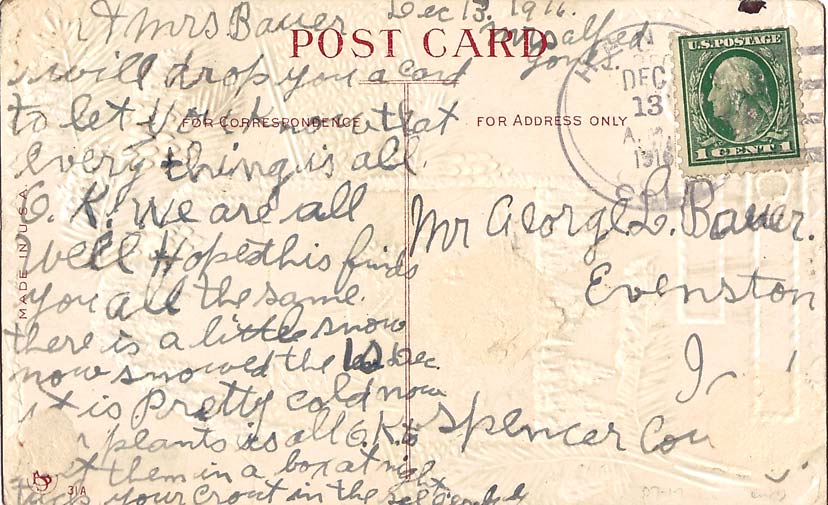 & Mrs Bauer Dec 13. 1916.
POST CARD
Mrs alfred
i will drop you a card
to let you know that
FOR CORRESPONDENCE
every thing is all
O. K! We are all
Well Hope this finds
you all the same.
there is a little snow
now snowed the Dec.
it is Pretty cold now
plants is all O.K. to
them in a box at night
your crout in the
MADE IN U.S.A.
31A
FOR ADDRESS ONLY
DEC
13
U.S. POSTAGE
1 CENT 1
Mr George L. Bauer.
Evenston
Spencer Cou